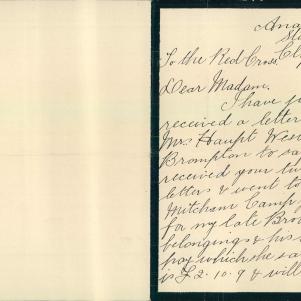 Ana
St
Cl
To the Red Cross.
Dear Madam.
I have ju
received a letter
Mrs Haupt Wes
Brompton to sa
received your tw
letters & went to
Mitcham Camp
for my late Bro
belongings & his
pay which she sa
is £2.10.9 & will